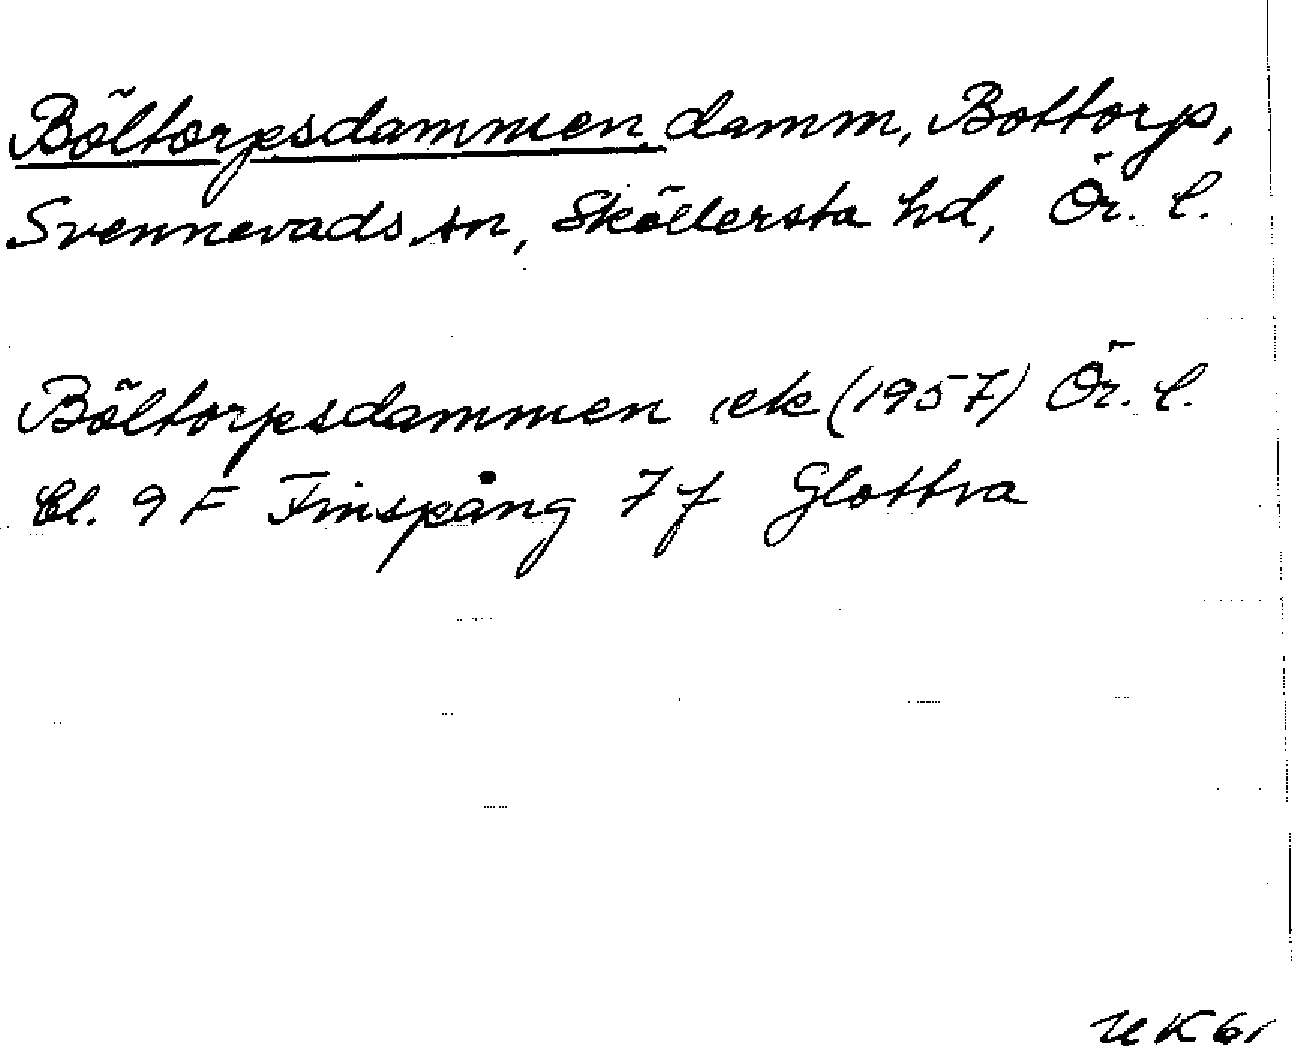 Böltorpsdammen, damm, Bottorp,
Svennevads sn, Sköllersta hd, Ör. l.
Böltorpsdammen ek (1957) Ör. l.
Bl. 9 F Finspång 7 f Glottra
UK 61